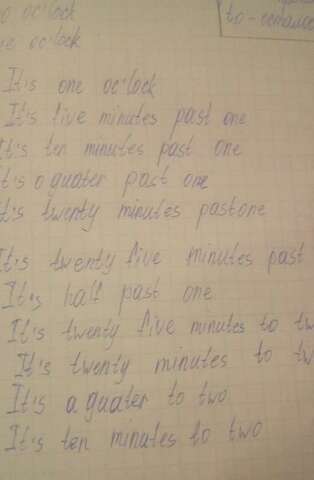 o oc'lock
to - осталос
ne oc'lock
It's one oc'lock
It's five minutes past one
It's ten minutes past one
t's a guater past one
t's twenty minutes past one
It's twenty five minutes past
It's half past one
It's twenty five minutes to tw
It's twenty minutes to tw
It's a guater to two
It's ten minutes to two